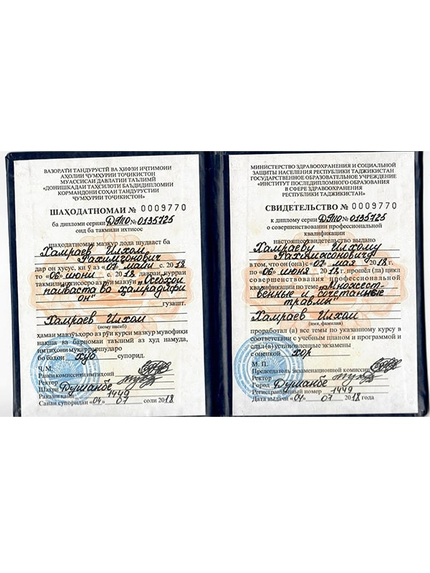 ВАЗОРАТИ ТАНДУРУСТӢ ВА ҲИФЗИ ИҶТИМОИИ
АҲОЛИИ ҶУМҲУРИИ ТОҶИКИСТОН
МУАССИСАИ ДАВЛАТИИ ТАЪЛИМӢ
«ДОНИШКАДАИ ТАҲСИЛОТИ БАЪДИДИПЛОМИИ
КОРМАНДОНИ СОҲАИ ТАНДУРУСТИИ
ҶУМҲУРИИ ТОҶИКИСТОН»
ШАҲОДАТНОМАИ № 0009770
ба дипломи серияи ДТПО №0195725
оид ба такмили ихтисос
шаҳодатномаи мазкур дода шудааст ба
Хамраев Илхом
дар он хусус, ки ӯ аз «07» май с. 2018
то «06» июни с. 2018
гузашт.
Хамраев Илхом
(ному насаб)
ҳамаи мавзӯъҳоро аз рӯи курси мазкур мувофиқи
нақша ва барномаи таълимӣ аз худ намуда,
хуб супорид.
Ҷ. М.
Раиси комиссияи имтиҳонӣ
Ректор
Шаҳри Душанбе
1449
Санаи супоридан «04» 07 соли 2018
МИНИСТЕРСТВО ЗДРАВООХРАНЕНИЯ И СОЦИАЛЬНОЙ
ЗАЩИТЫ НАСЕЛЕНИЯ РЕСПУБЛИКИ ТАДЖИКИСТАН
ГОСУДАРСТВЕННОЕ ОБРАЗОВАТЕЛЬНОЕ УЧРЕЖДЕНИЕ
«ИНСТИТУТ ПОСЛЕДИПЛОМНОГО ОБРАЗОВАНИЯ
В СФЕРЕ ЗДРАВООХРАНЕНИЯ
РЕСПУБЛИКИ ТАДЖИКИСТАН»
СВИДЕТЕЛЬСТВО № 0009770
к диплому серии ДТПО №0195725
о совершенствовании профессиональной
квалификации
настоящее свидетельство выдано
Хамраеву Илхому
в том, что он(она) с «07» мая 2018 г.
по «06» июня 2018 г. прошёл (ла) цикл
совершенствования профессиональной
квалификации по теме «Множест-
венные и сочетанные
травмы»
Хамраев Илхом
(имя, фамилия)
проработал (а) все темы по указанному курсу в
соответствии с учебным планом и программой и
сдал(а) установленные экзамены
с оценкой хор.
М. П.
Председатель экзаменационной комиссии
Ректор
Город Душанбе
Регистрационный номер 1449
Дата выдачи «04» 07 2018 года